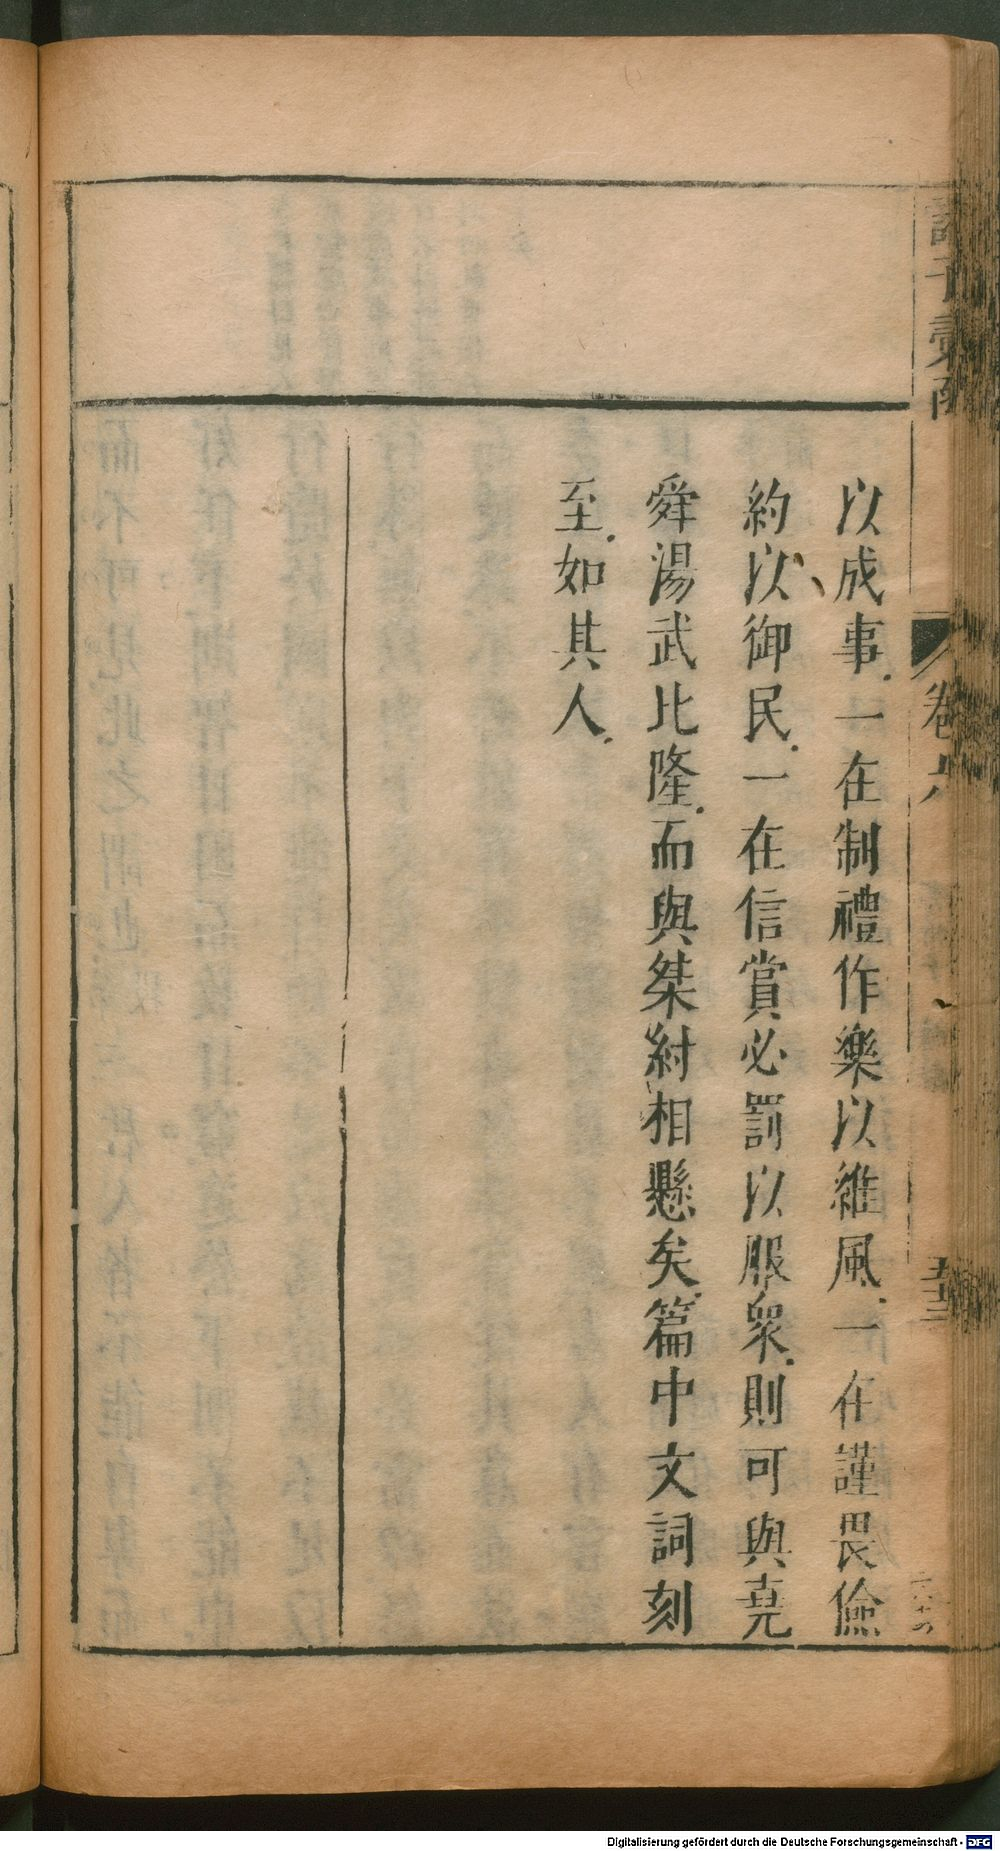 諸子彙函
卷六
五十三
以成事.一在制禮作樂以維風.一在謹畏儉
約以御民.一在信賞必罰以服衆.則可與堯
舜湯武比隆.而與桀紂相懸矣.篇中文詞刻
至.如其人.
Digitalisierung gefördert durch die Deutsche Forschungsgemeinschaft - DFG